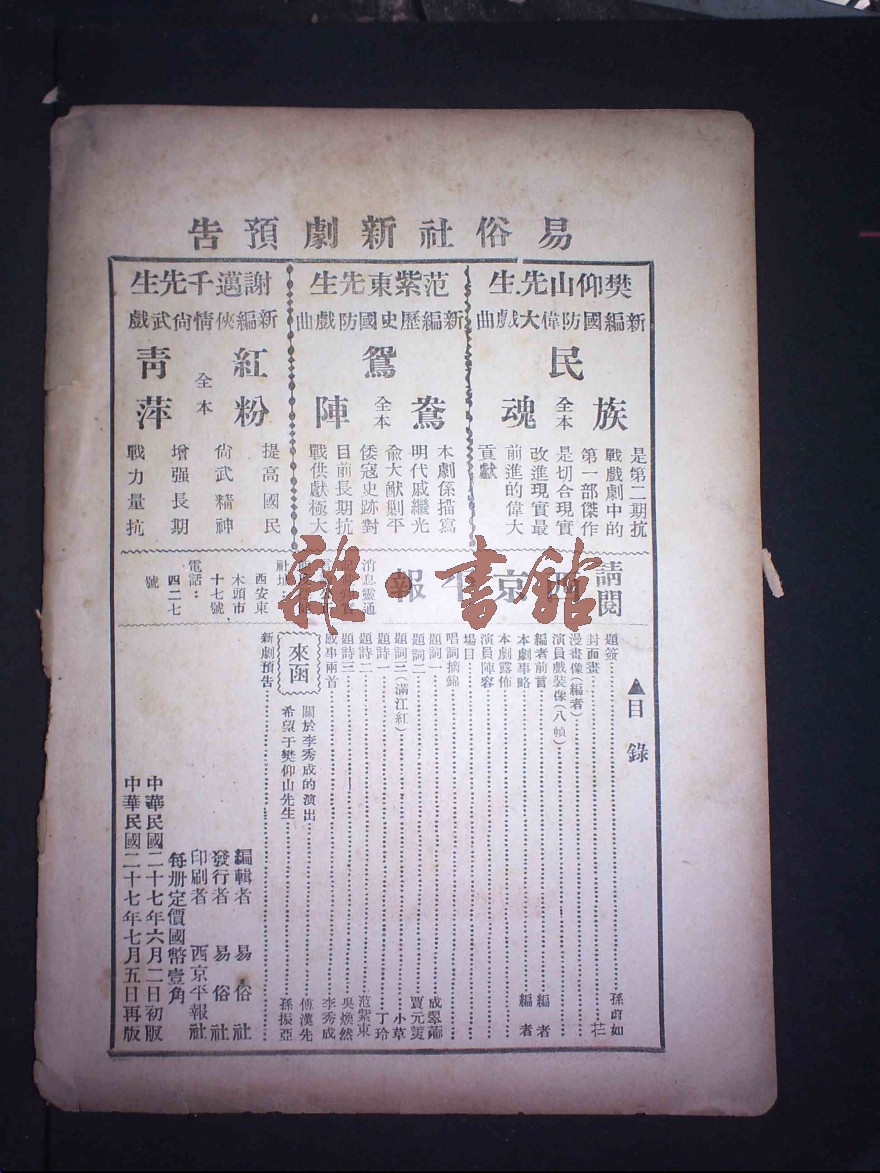 易俗社新劇預告
樊仰山先生
新編國防偉大戲曲
民族魂
全本
是第二期抗
戰戲劇中的
第一部傑作
是切合現實
改進現實最
前進的偉大
貢獻
范紫東先生
新編歷史國防戲曲
鴛鴦陣
全本
本劇係描寫
明代戚繼光
俞大猷剿平
倭寇史跡對
目前長期抗
戰供獻極大
謝邁千先生
新編俠情尙武戲
紅粉青萍
全本
提高國民
尙武精神
增强長期
戰力量抗
請閱
西京平報
消息靈通
社址：
西安東
木頭市
十七號
電話：
四二七
號
雜·書館
▲目錄
題簽 孫蔚如
封面畫
漫畫像(編者)
演員戲裝像(八幀)
編者前言 編者
本劇事略 編者
本劇露佈
演員陣容
場目
唱詞摘錦
題詞一 成翠
題詞二 賈元
題詞三(滿江紅) 小草
題詩一 丁玲
題詩二 范紫東
題詩三 吳煥然
感事兩首 李秀成
來函
關於李秀成的演出 傅漢先
希望于樊仰山先生 孫振亞
新劇預告
編輯者 易俗社
發行者 易俗社
印刷者 西京平報社
每册定價國幣壹角
中華民國二十七年六月二日初版
中華民國二十七年七月五日再版